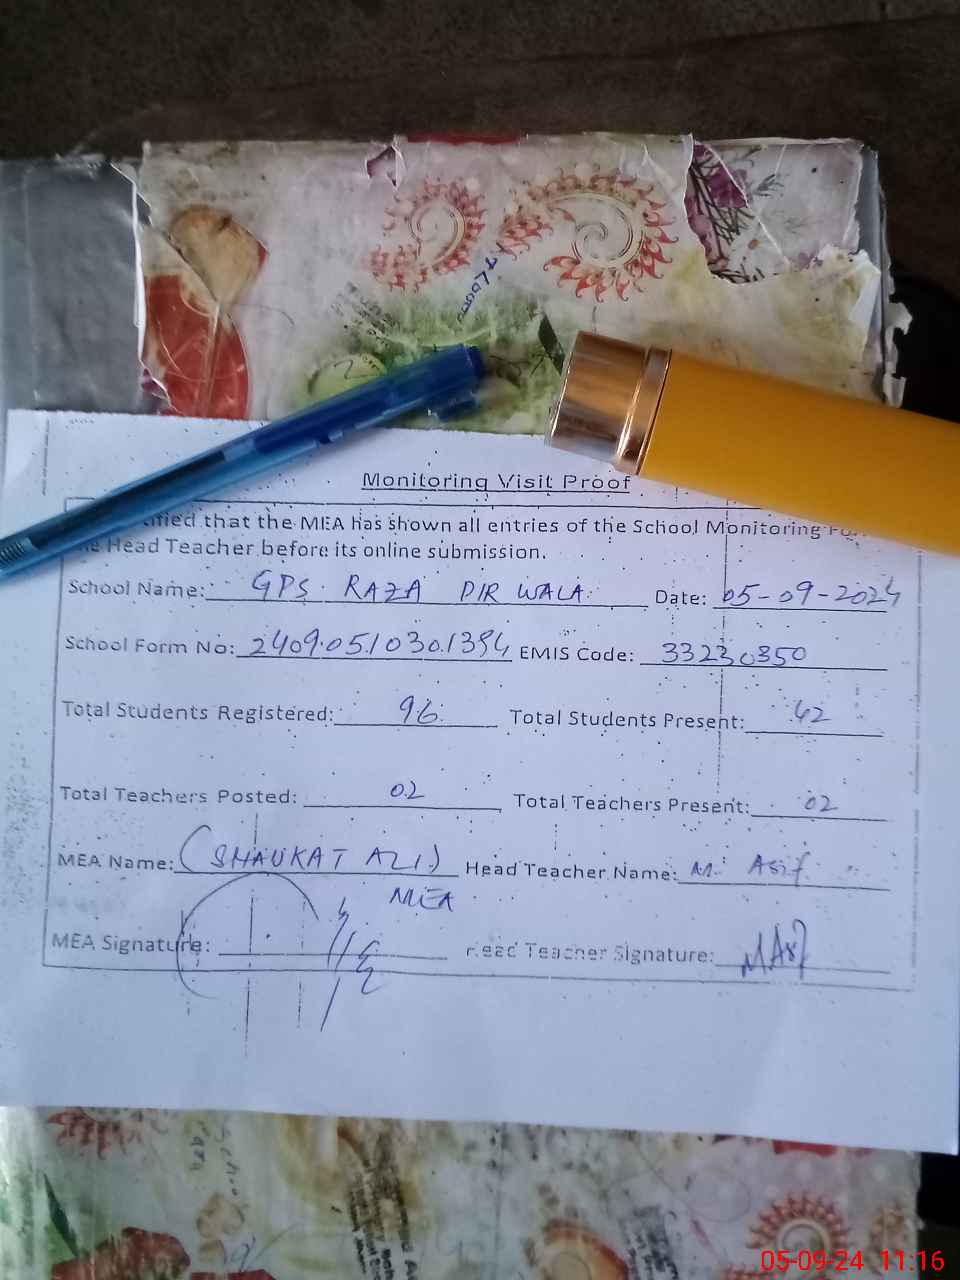 Monitoring Visit Proof
that the MEA has shown all entries of the School Monitoring
Head Teacher before its online submission.
School Name: GPS. RAZA PIR WALA. Date: 05-09-2024
School Form No: 2409.05.1030.1394 EMIS Code: 33230350
Total Students Registered: 96 Total Students Present: 42
Total Teachers Posted: 02 Total Teachers Present: 02
MEA Name: (SHAUKAT ALI) Head Teacher Name: M. Asif
MEA
MEA Signature: Head Teacher Signature: MAsif
05-09-24 11:16